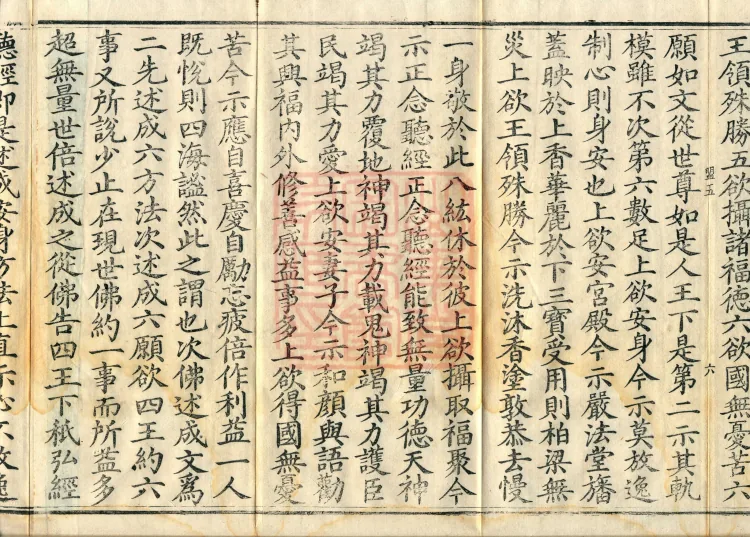 王領殊勝五欲攝諸福德六欲國無憂苦六
願如文從世尊如是人王下是第二示其軌
盟五
六
模雖不次第六數足上欲安身今示莫放逸
制心則身安也上欲安宮殿今示嚴法堂旛
蓋映於上香華麗於下三寶受用則柏梁無
災上欲王領殊勝今示洗沐香塗敦恭去慢
一身敬於此八紘休於彼上欲攝取福聚今
示正念聽經正念聽經能致無量功德天神
竭其力覆地神竭其力載鬼神竭其力護臣
民竭其力愛上欲安妻子今示和顏與語勸
其興福内外修善感益事多上欲得國無憂
苦今示應自喜慶自勵忘疲倍作利益一人
既悅則四海謐然此之謂也次佛述成文爲
二先述成六方法次述成六願欲四王約六
事又所說少止在現世佛約一事而所益多
超無量世倍述成之從佛告四王下祇弘經
德經即是述成安身方法上直示心不放逸